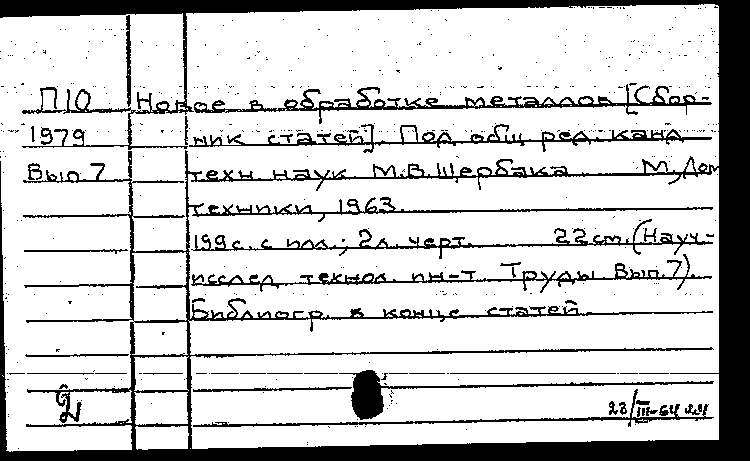 П10 Новое в обработке металлов [Сбор-
1979 ник статей]. Под общ. ред. канд.
Вып. 7 техн. наук М.В. Щербака М., Дом
техники, 1963.
199 с. с илл.; 2 л. черт. 22 см. (Науч.-
исслед. технол. ин-т. Труды Вып. 7).
Библиогр. в конце статей.
23/III-64